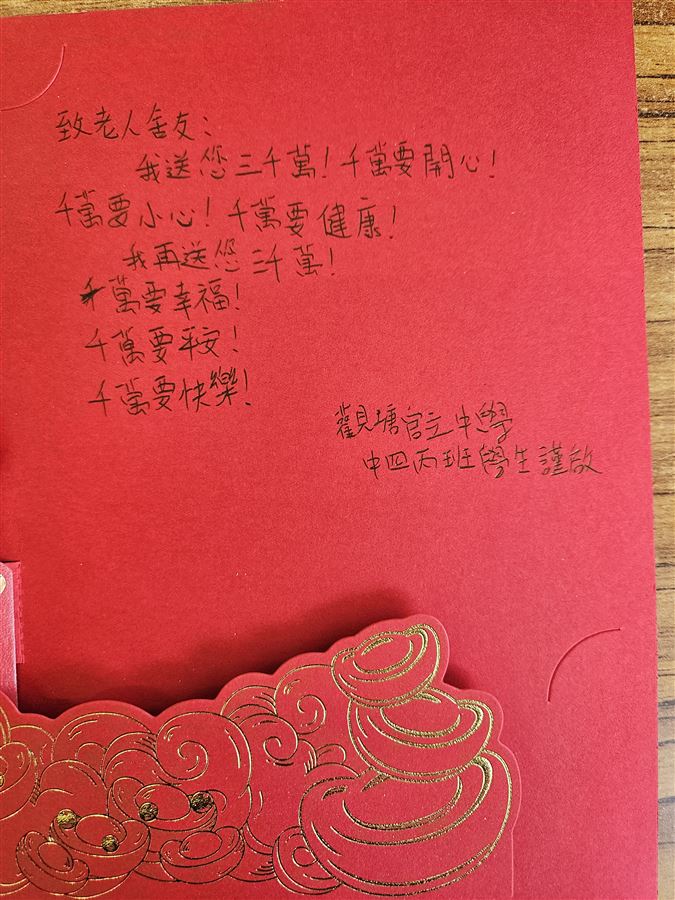 致老人舍友：
我送您三千萬！千萬要開心！
千萬要小心！千萬要健康！
我再送您三千萬！
千萬要幸福！
千萬要平安！
千萬要快樂！
觀塘官立中學
中四丙班學生謹啟